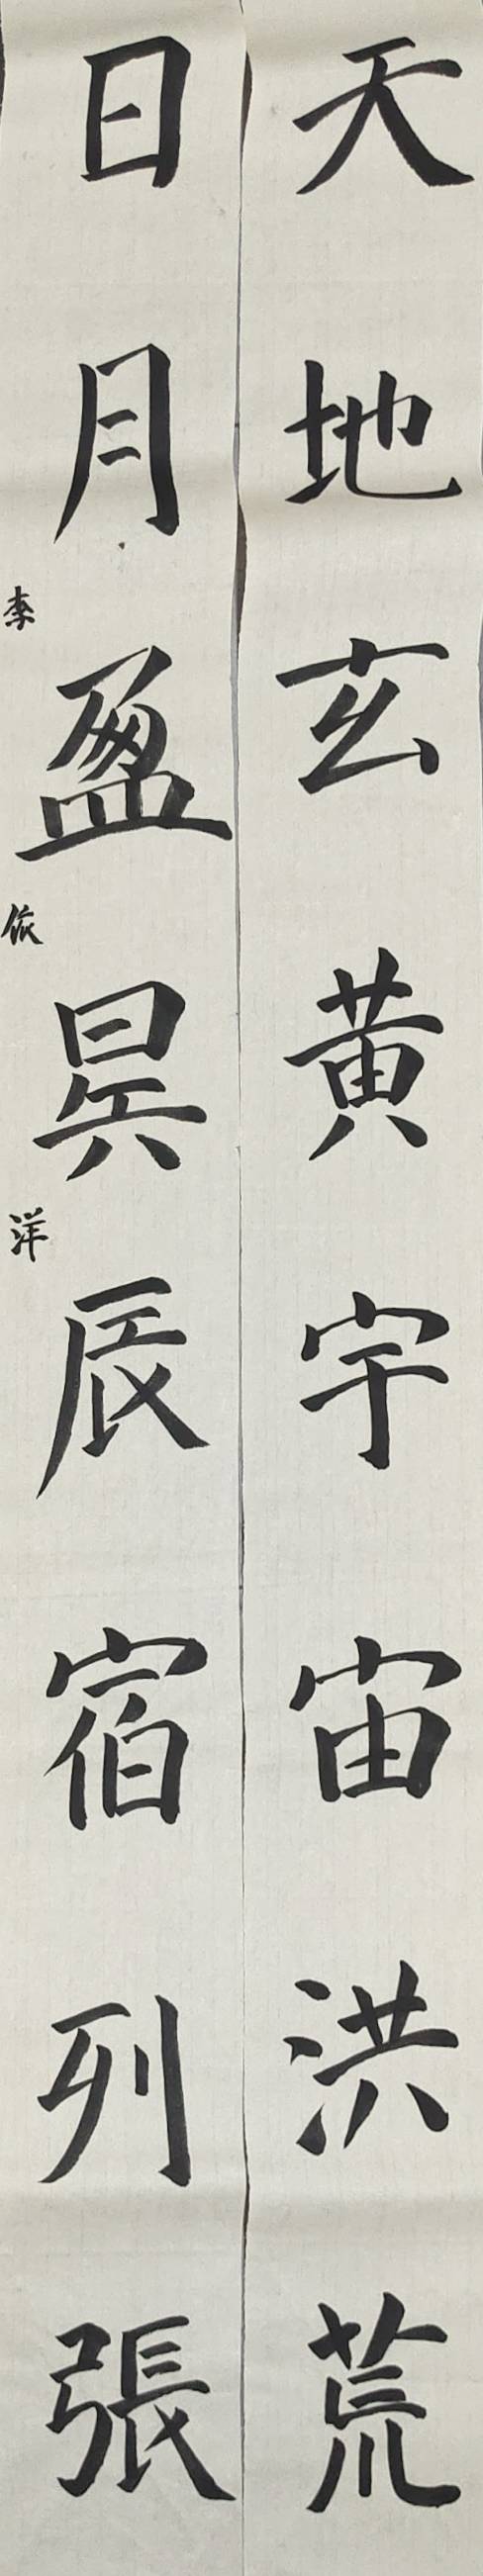 天地玄黄宇宙洪荒
日月盈昃辰宿列張
李依洋